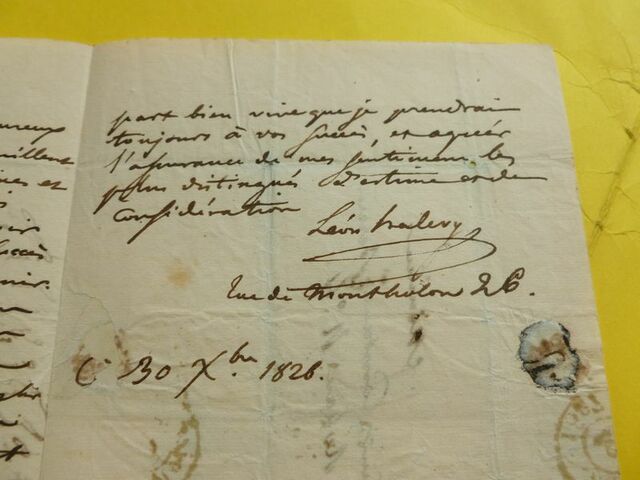 part bien vive que je prendrai
toujours à vos succès, et agréer
l'assurance de mes sentimens les
plus distingués d'estime et de
considération
Léon halevy
rue de Montholon 26.
C 30 Xbre 1826.
ureux
uillent
et
succès